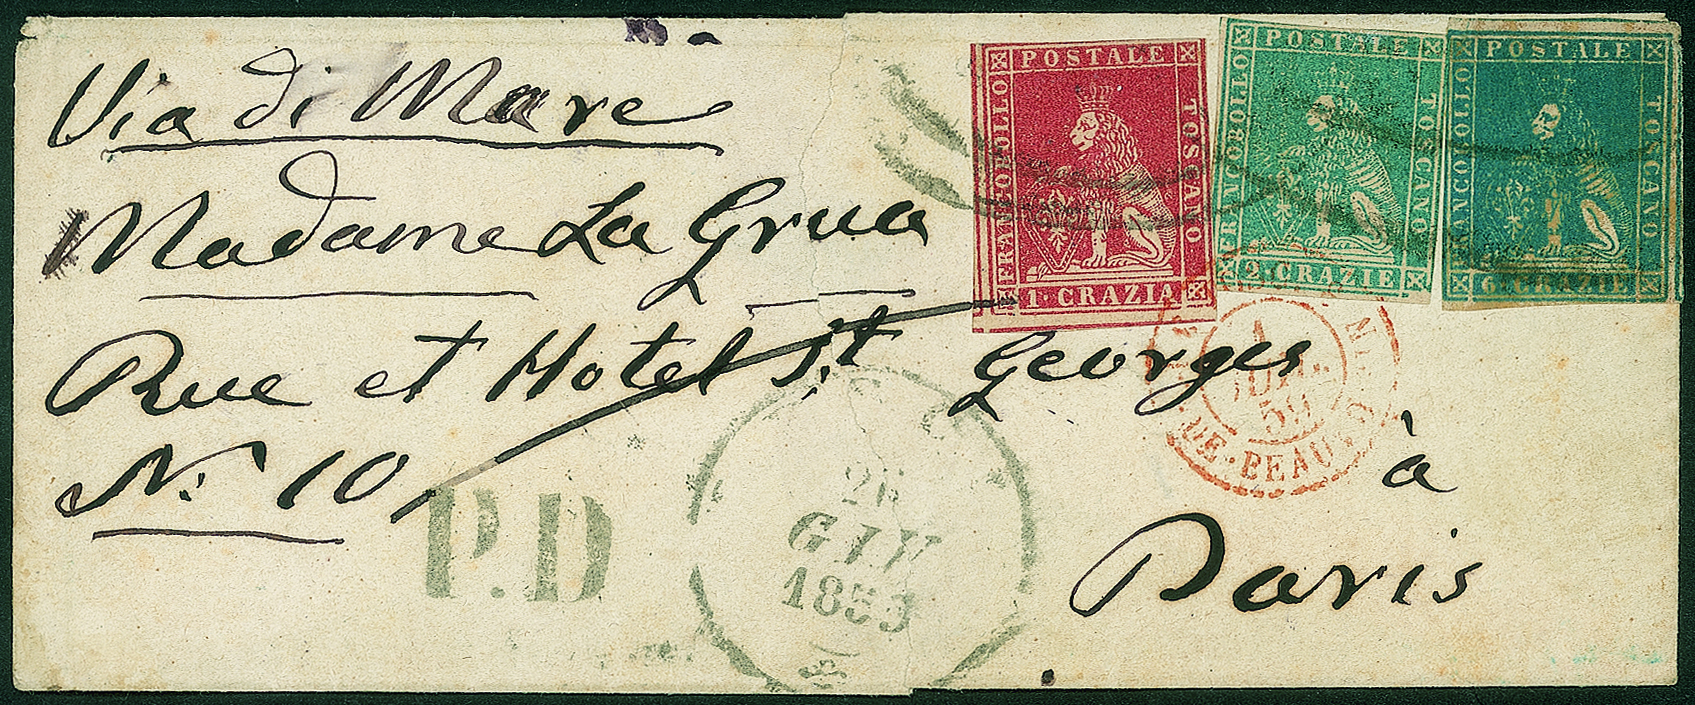 Via di Mare
Madame La Grua
Rue et Hotel St. Georges
No. 10
à
Paris
P.D
26
GIU
1853
POSTALE
FRANCOBOLLO
TOSCANO
1. CRAZIA
POSTALE
FRANCOBOLLO
TOSCANO
2. CRAZIE
POSTALE
FRANCOBOLLO
TOSCANO
6. CRAZIE
1
JUIL.
59
DE-BEAU